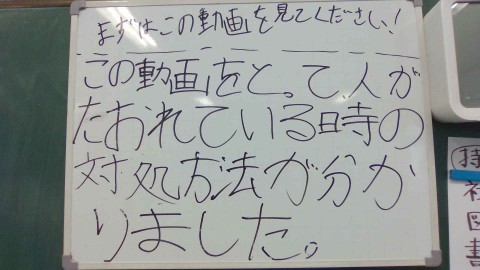 まずはこの動画を見てください!
この動画をと。て、人が
たおれている時の
対処方法が分か
りました。
持
社
図
書